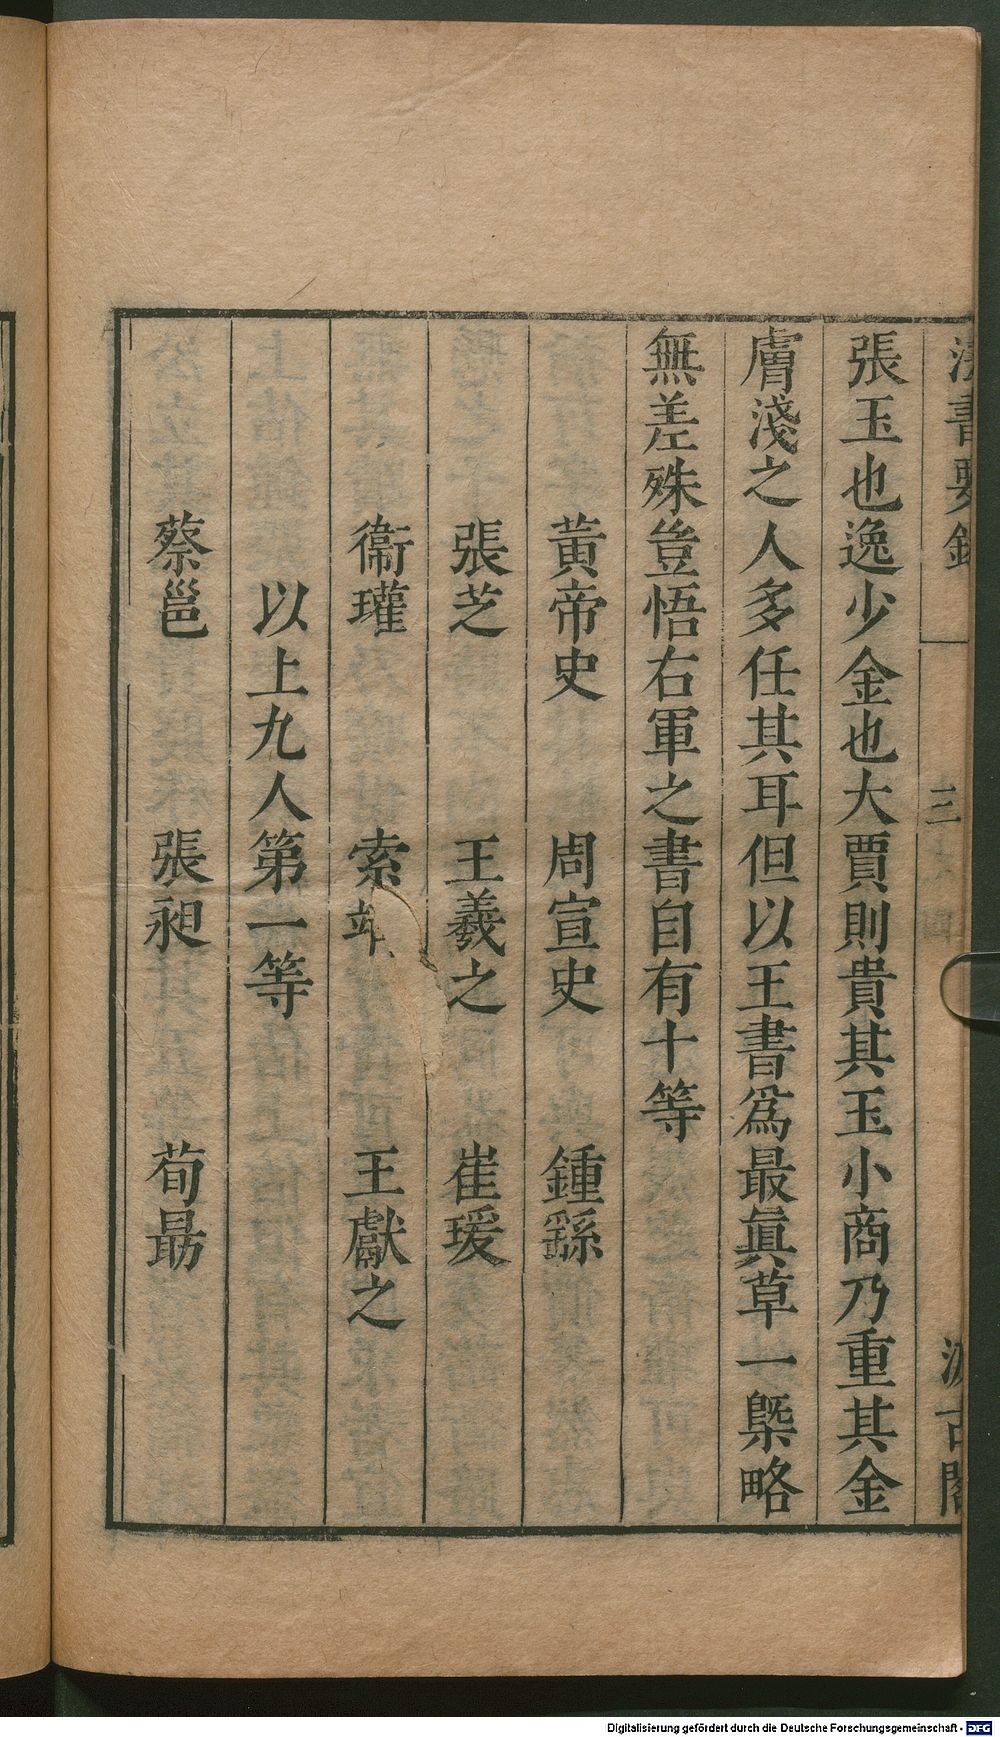 法書要錄
三
汲古閣
張玉也逸少金也大賈則貴其玉小商乃重其金
膚淺之人多任其耳但以王書爲最眞草一槩略
無差殊豈悟右軍之書自有十等
黃帝史 周宣史 鍾繇
張芝 王羲之 崔瑗
衞瓘 索 王獻之
以上九人第一等
蔡邕 張昶 荀勗
Digitalisierung gefördert durch die Deutsche Forschungsgemeinschaft - DFG